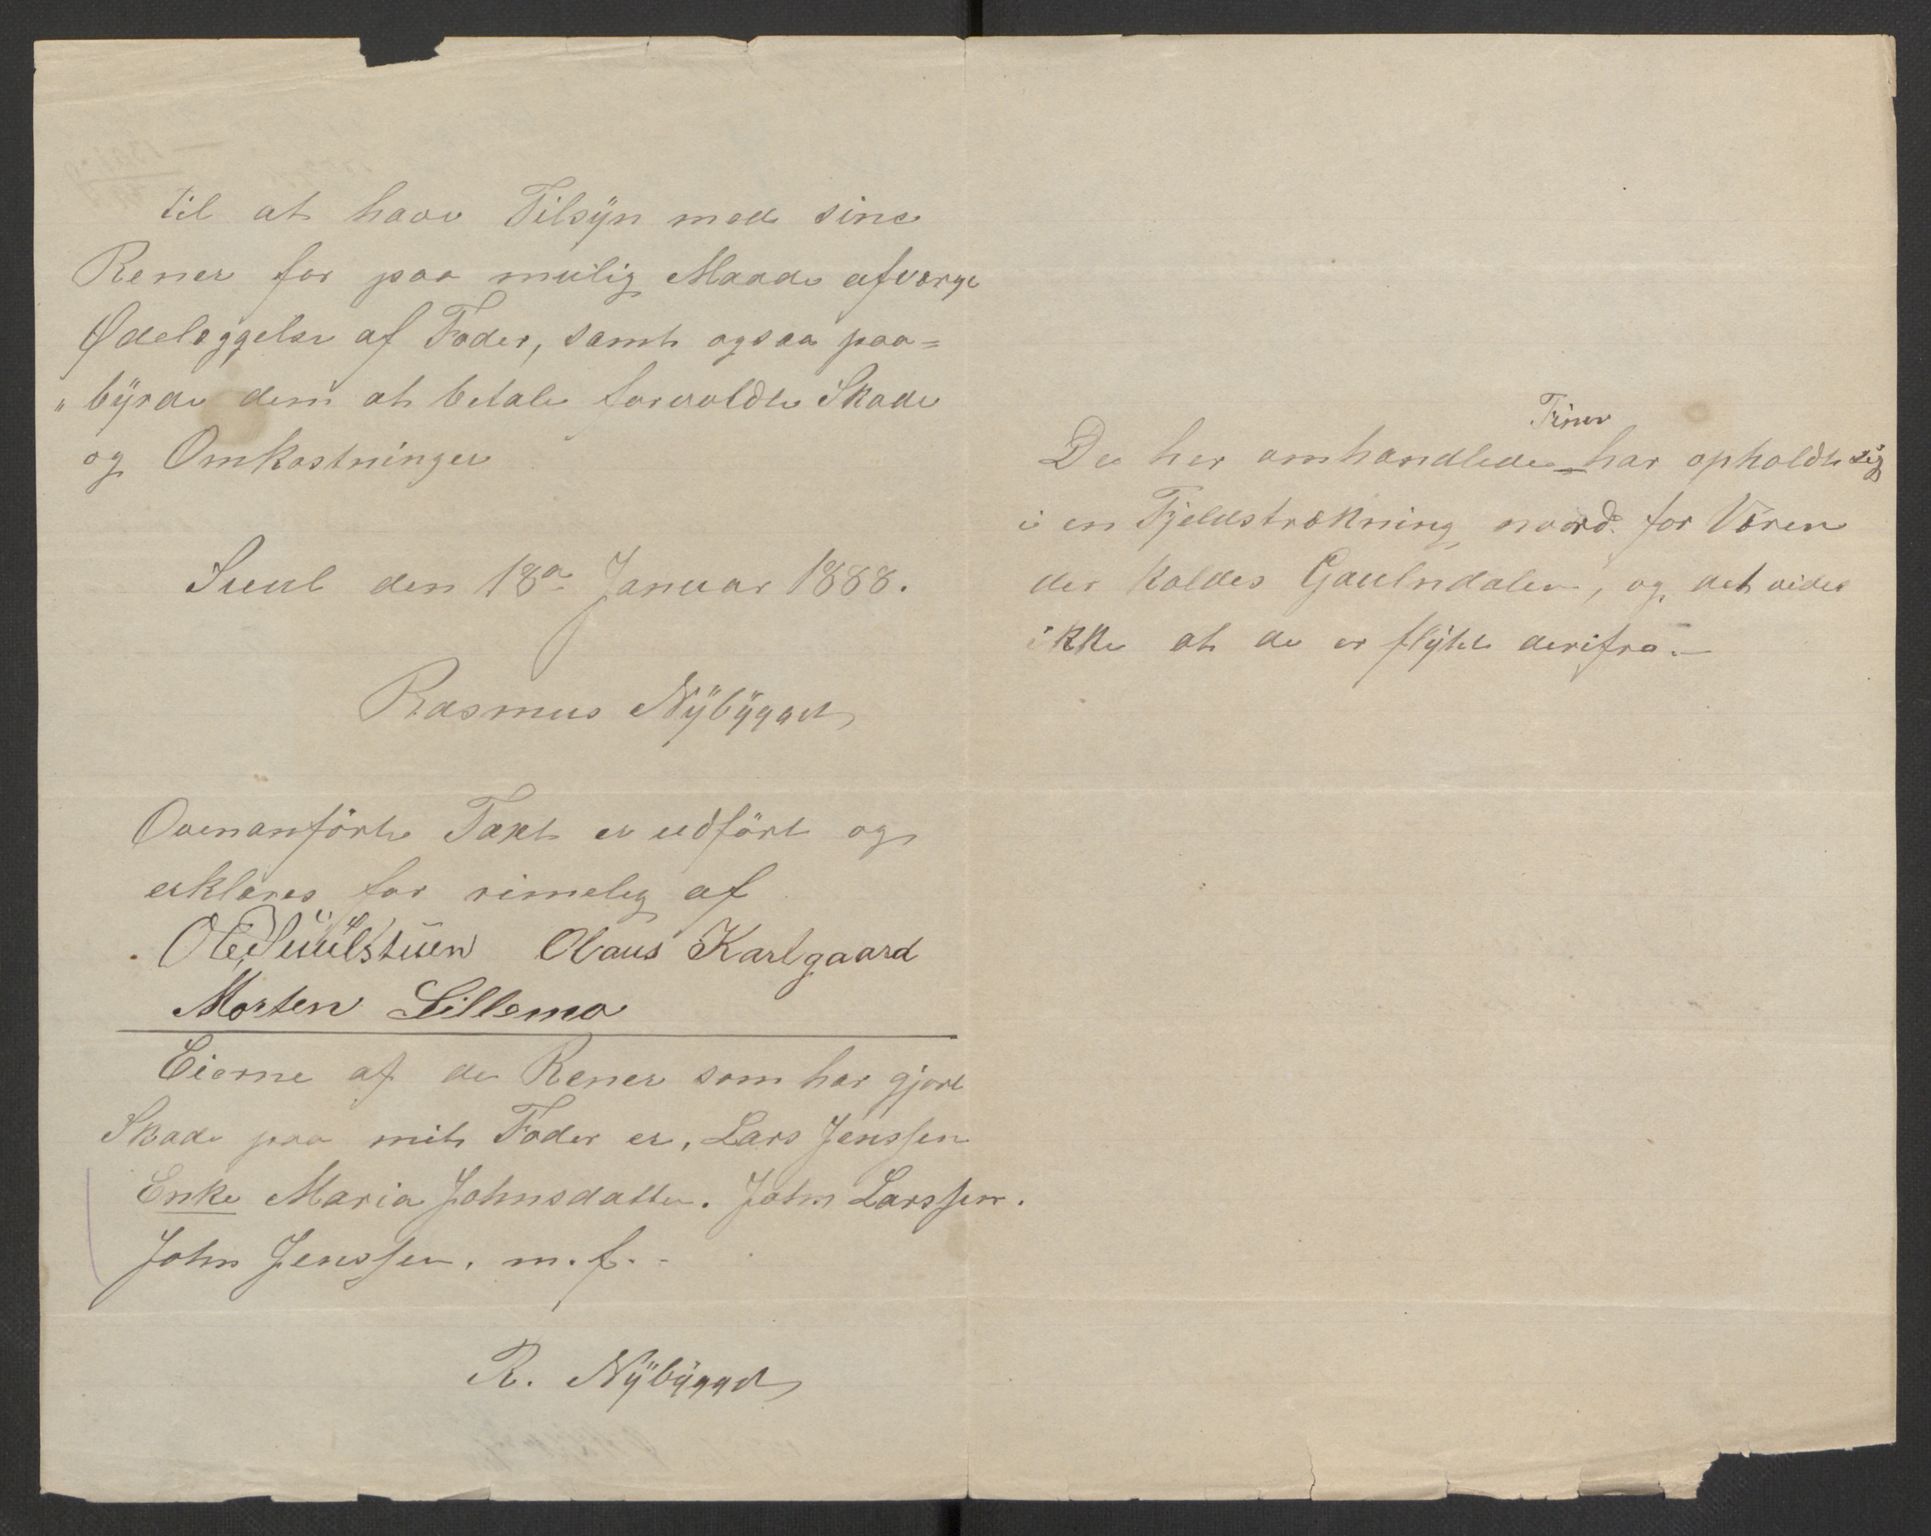 til at have Tilsÿn med sine
Rener for paa mulig Maade afværge
Ødelæggelse af Foder, samt ogsaa paa=
"bÿrde dem at betale forvoldte Skade
og Omkostninger
Suul den 18de Januar 1888.
Rasmus Nÿbÿgget
Ovenanförte Taxt er udfört og
erklæres for rimelig af
Ole Suulstuen Olaus Karlgaard
Morten Lillemo
Eierne af de Rener som har gjort
Skade paa mit Foder er, Lars Jenssen
Enke Maria Johnsdatter. John Larssen.
John Jenssen, m. fl.
R. Nÿbÿgget
De her omhandlede Finner har opholdt sig
i en Fjeldstrækning nord for Væren
der kaldes Gaulndalen, og det vides
ikke at de er flÿttet derifra.—